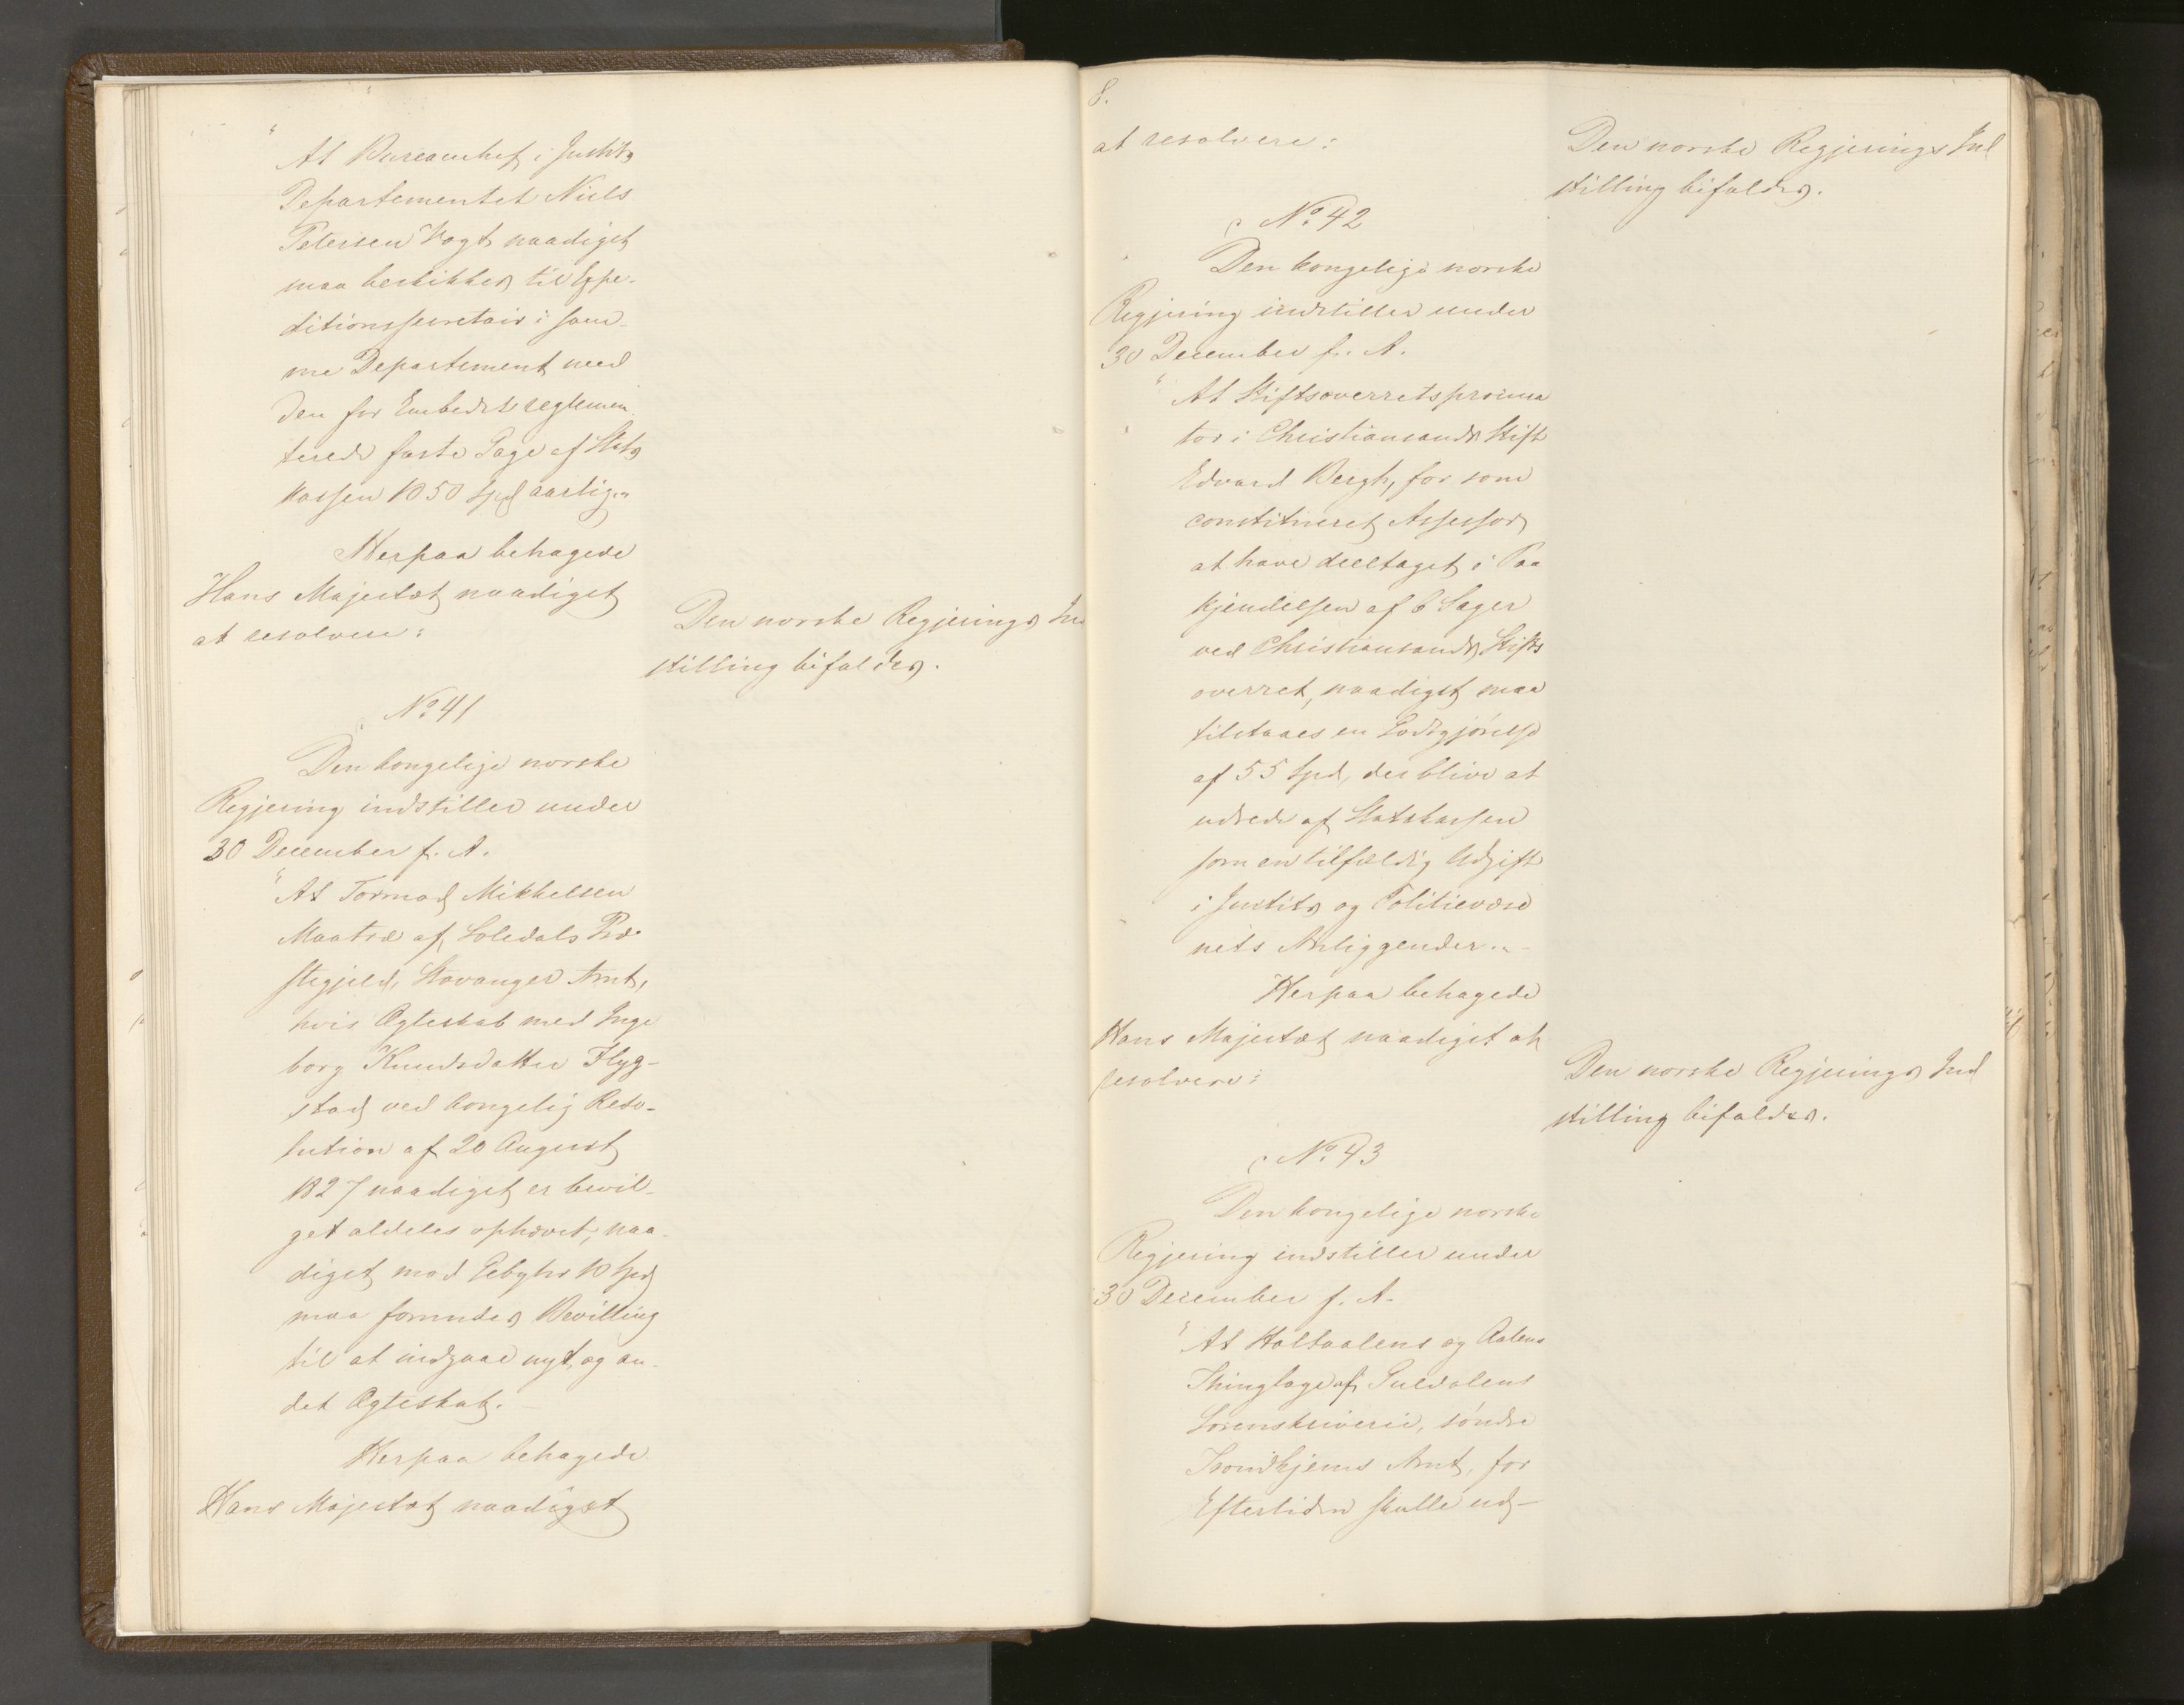 "At Bureauchef i Justits
Departementet Niels
Petersen Vogt naadigst
maa beskikkes til Expe-
ditionssecretair i sam-
me Departement med
den for Embedet reglemen
terede faste Gage af Stats
kassen 1050 Spd aarlig."
Herpaa behagede
Hans Majestæt naadigst
at resolvere:
Den norske Regjerings Ind
stilling bifaldes.
No. 41
Den kongelige norske
Regjering indstiller under
30 December f. A.
"At Tormod Mikkelsen
Maatræ af Soledals Præ-
stegjeld, Stavanger Amt,
hvis Ægteskab med Inge
borg Knudsdatter Flyg-
stad ved kongelig Reso-
lution af 20 August
1827 naadigst er bevil-
get aldeles ophævet, naa-
digst mod Gebyhr 10 Spd
maa forundes Bevilling
til at indgaae nyt og an-
det Ægteskab. -
Herpaa behagede
Hans Majestæt naadigst
8.
at resolvere:
Den norske Regjerings Ind
stilling bifaldes.
No. 42
Den kongelige norske
Regjering indstiller under
30 December f. A.
"At Stiftsoverretsprocura
tor i Christiansands Stift
Edvard Bergh, for som
constitueret Assessor
at have deeltaget i Paa
kjendelsen af 6 Sager
ved Christiansands Stifts
overret, naadigst maa
tilstaaes en Godtgjørelse
af 55 Spd, der blive at
udrede af Statskassen
som en tilfældig Udgift
i Justits og Politievæse
nets Anliggender."-
Herpaa behagede
Hans Majestæt naadigst at
resolvere:
Den norske Regjerings Ind
stilling bifaldes.
No. 43
Den kongelige norske
Regjering indstiller under
30 December f. A.
"At Holtaalens og Aalens
Thinglage af Guldalens
Sorenskriverie, søndre
Trondhjems Amt, for
Eftertiden skulle ud-